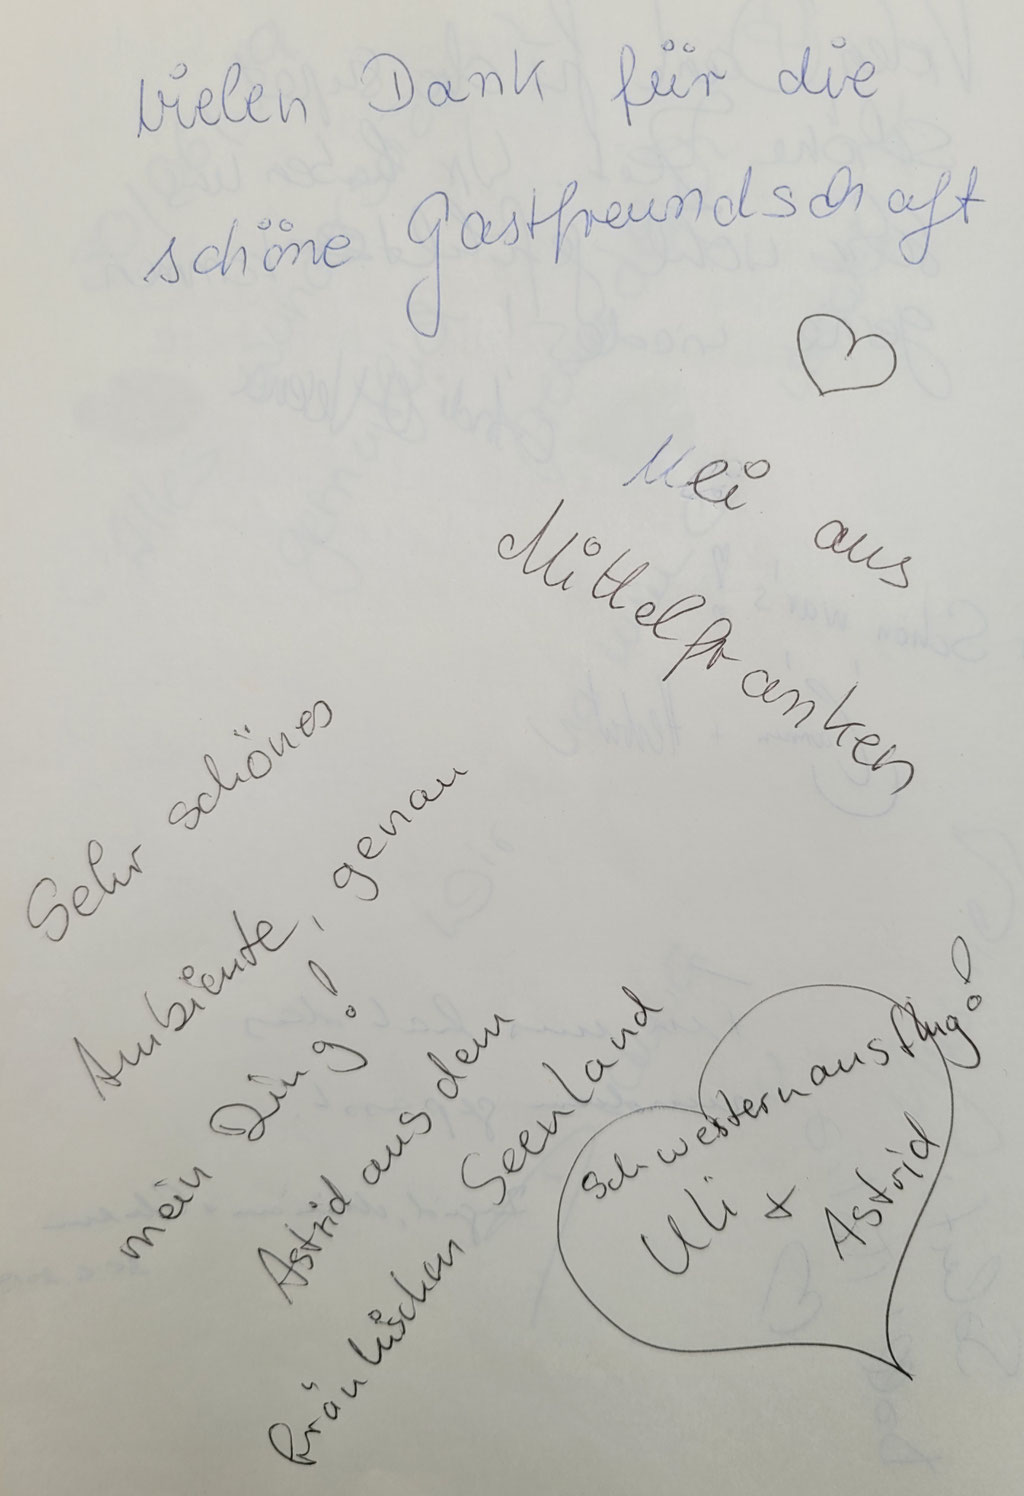 Vielen Dank für die
schöne Gastfreundschaft
aus
Mittelfranken
Sehr schönes
Ambiente, genau
mein Ding!
Astrid aus dem
fränkischen Seenland
Schwesternausflug!
Uli +
Astrid